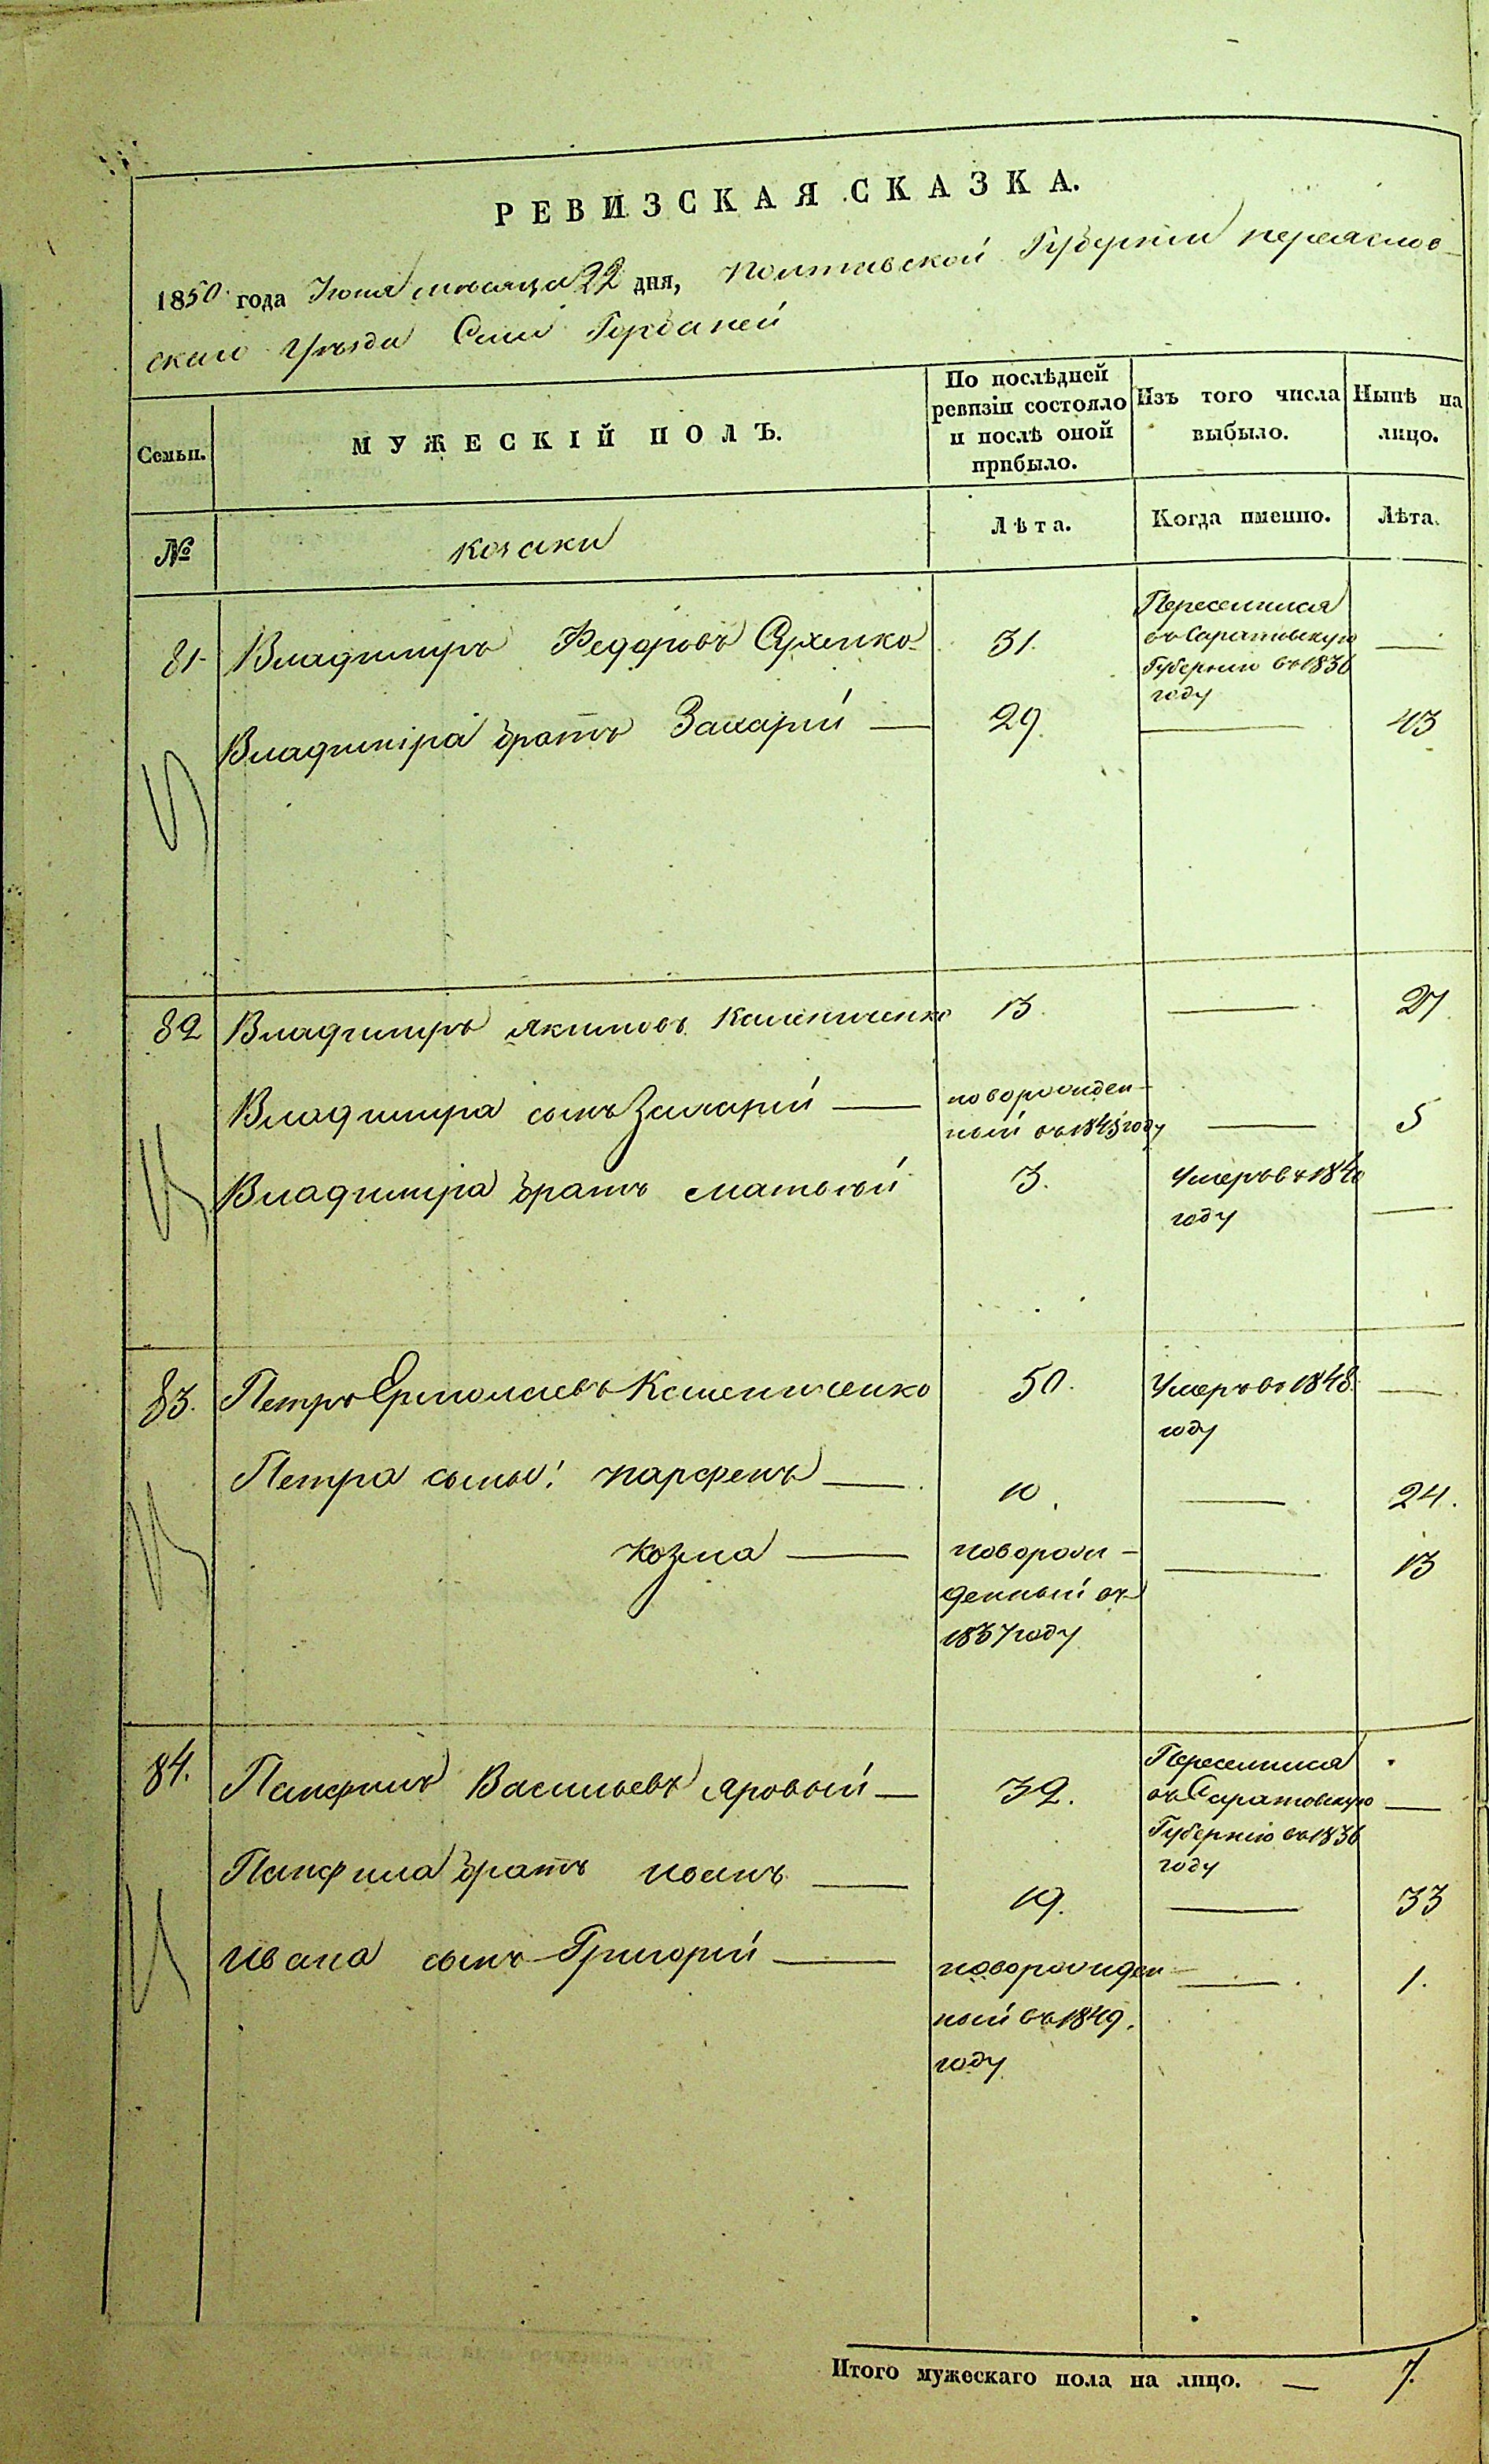 РЕВИЗСКАЯ СКАЗКА.
1850 года Июня мѣсяца 22 дня, Полтавской Губерніи переяслов-
скаго Уѣзда Села
Семьи.
МУЖЕСКІЙ ПОЛЪ.
По послѣдней ревизіи состояло и послѣ оной прибыло.
Изъ того числа выбыло.
Нынѣ на лицо.
№
козаки
Лѣта.
Когда именно.
Лѣта.
81. Владимиръ Федоровъ 31. Переселился въ Саратовскую Губернію въ 1836 году —
Владиміра братъ Захарій — 29. — 43
82 Владимиръ Якимовъ Калениченко 13. — 27
Владимира сынъ Захарій — новорожден-ный въ 1845 году — 5
Владиміра братъ Матвѣй 3. Умеръ въ 1840 году —
83. Петръ Ермолаевъ Каленниченко 50. Умеръ въ 1848. году —
Петра сыны: Парфенъ — 10. — 24.
Козма — новорож-денный въ 1837 году — 13
84. Панфилъ Васильевъ Яровый — 32. Переселился въ Саратовскую Губернію въ 1836 году —
Панфила братъ Иванъ — 19. — 33
Ивана сынъ Григорій — новорожден-ный въ 1849. году — 1.
Итого мужескаго пола на лицо. — 7.